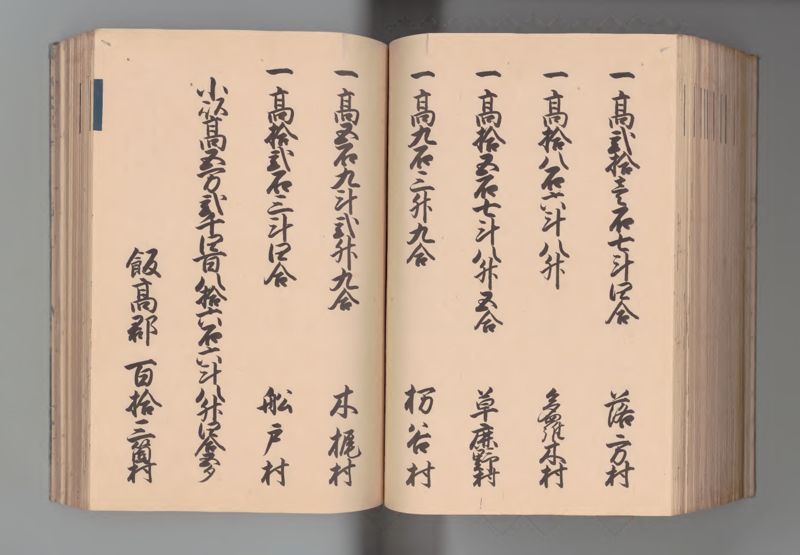 一高弐拾壱石七斗四合 落方村
一高拾八石六斗八升 多羅木村
一高拾五石七斗八升五合 草鹿野村
一高九石三升九合 栃谷村
一高五石九斗弐升九合 木梶村
一高拾弐石三斗四合 舩戸村
小以高五万弐千四百八拾六石六斗八升四合
飯高郡 百拾三箇村